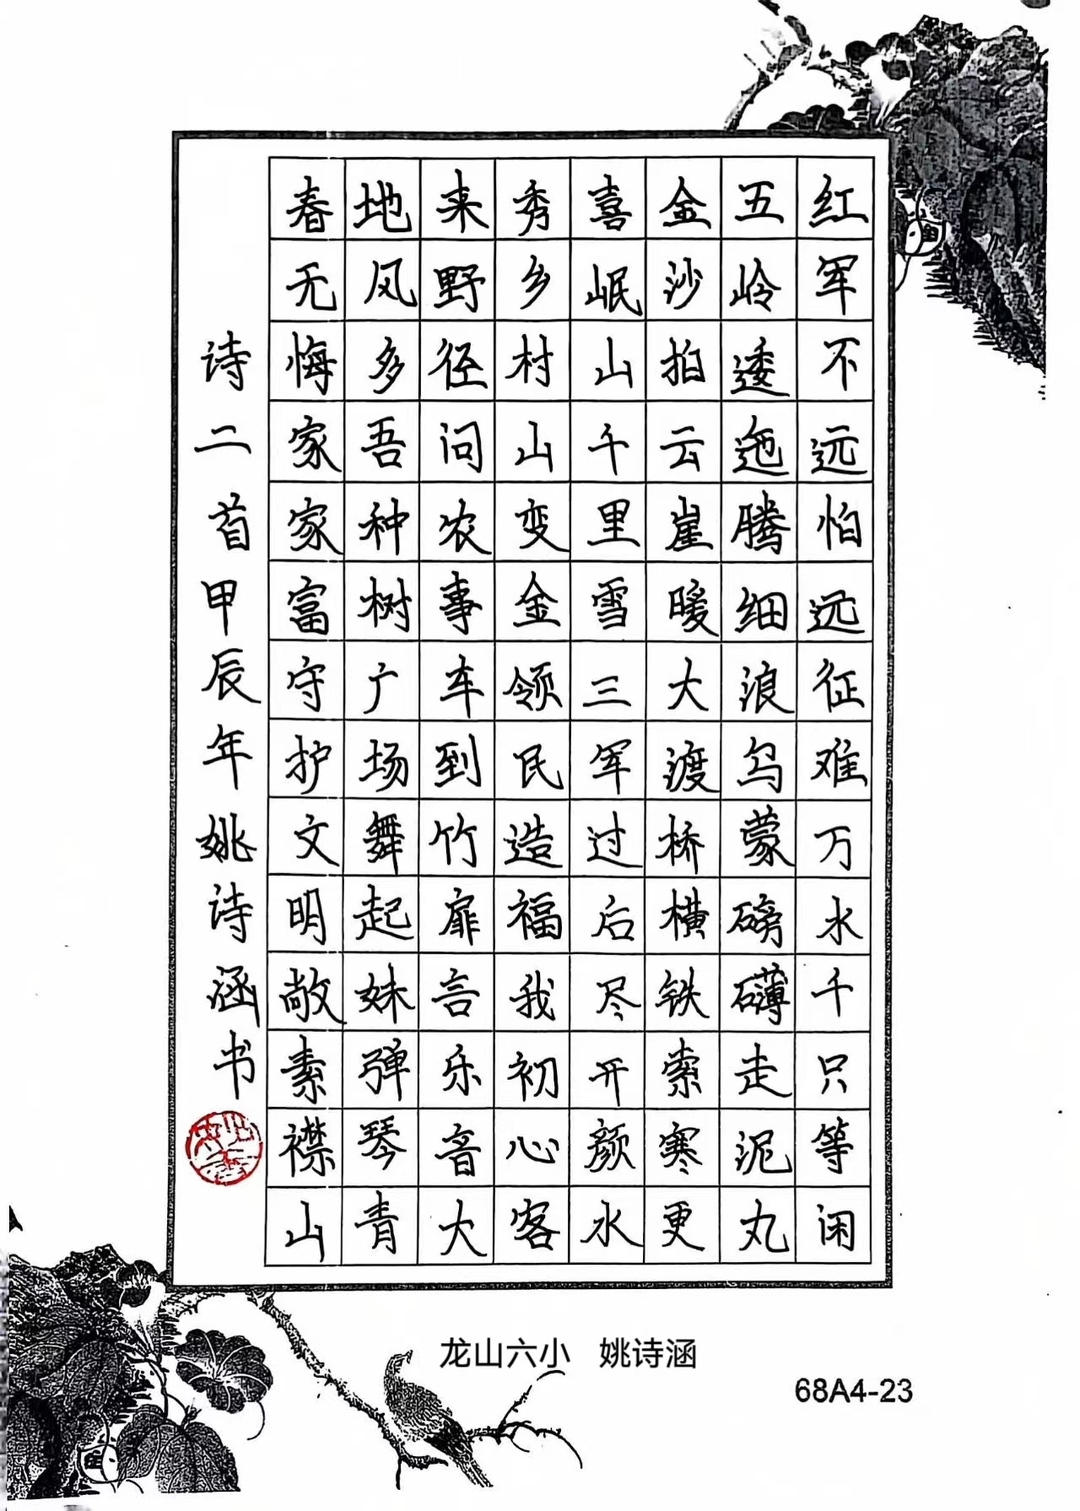 红军不远怕远征难万水千只等闲
五岭逶迤腾细浪乌蒙磅礴走泥丸
金沙拍云崖暖大渡桥横铁索寒更
喜岷山千里雪三军过后尽开颜水
秀乡村山变金领民造福我初心客
来野径问农事车到竹扉言乐音大
地风多吾种树广场舞起妹弹琴青
春无悔家家富守护文明敞素襟山
诗二首甲辰年姚诗涵书
龙山六小 姚诗涵
68A4-23